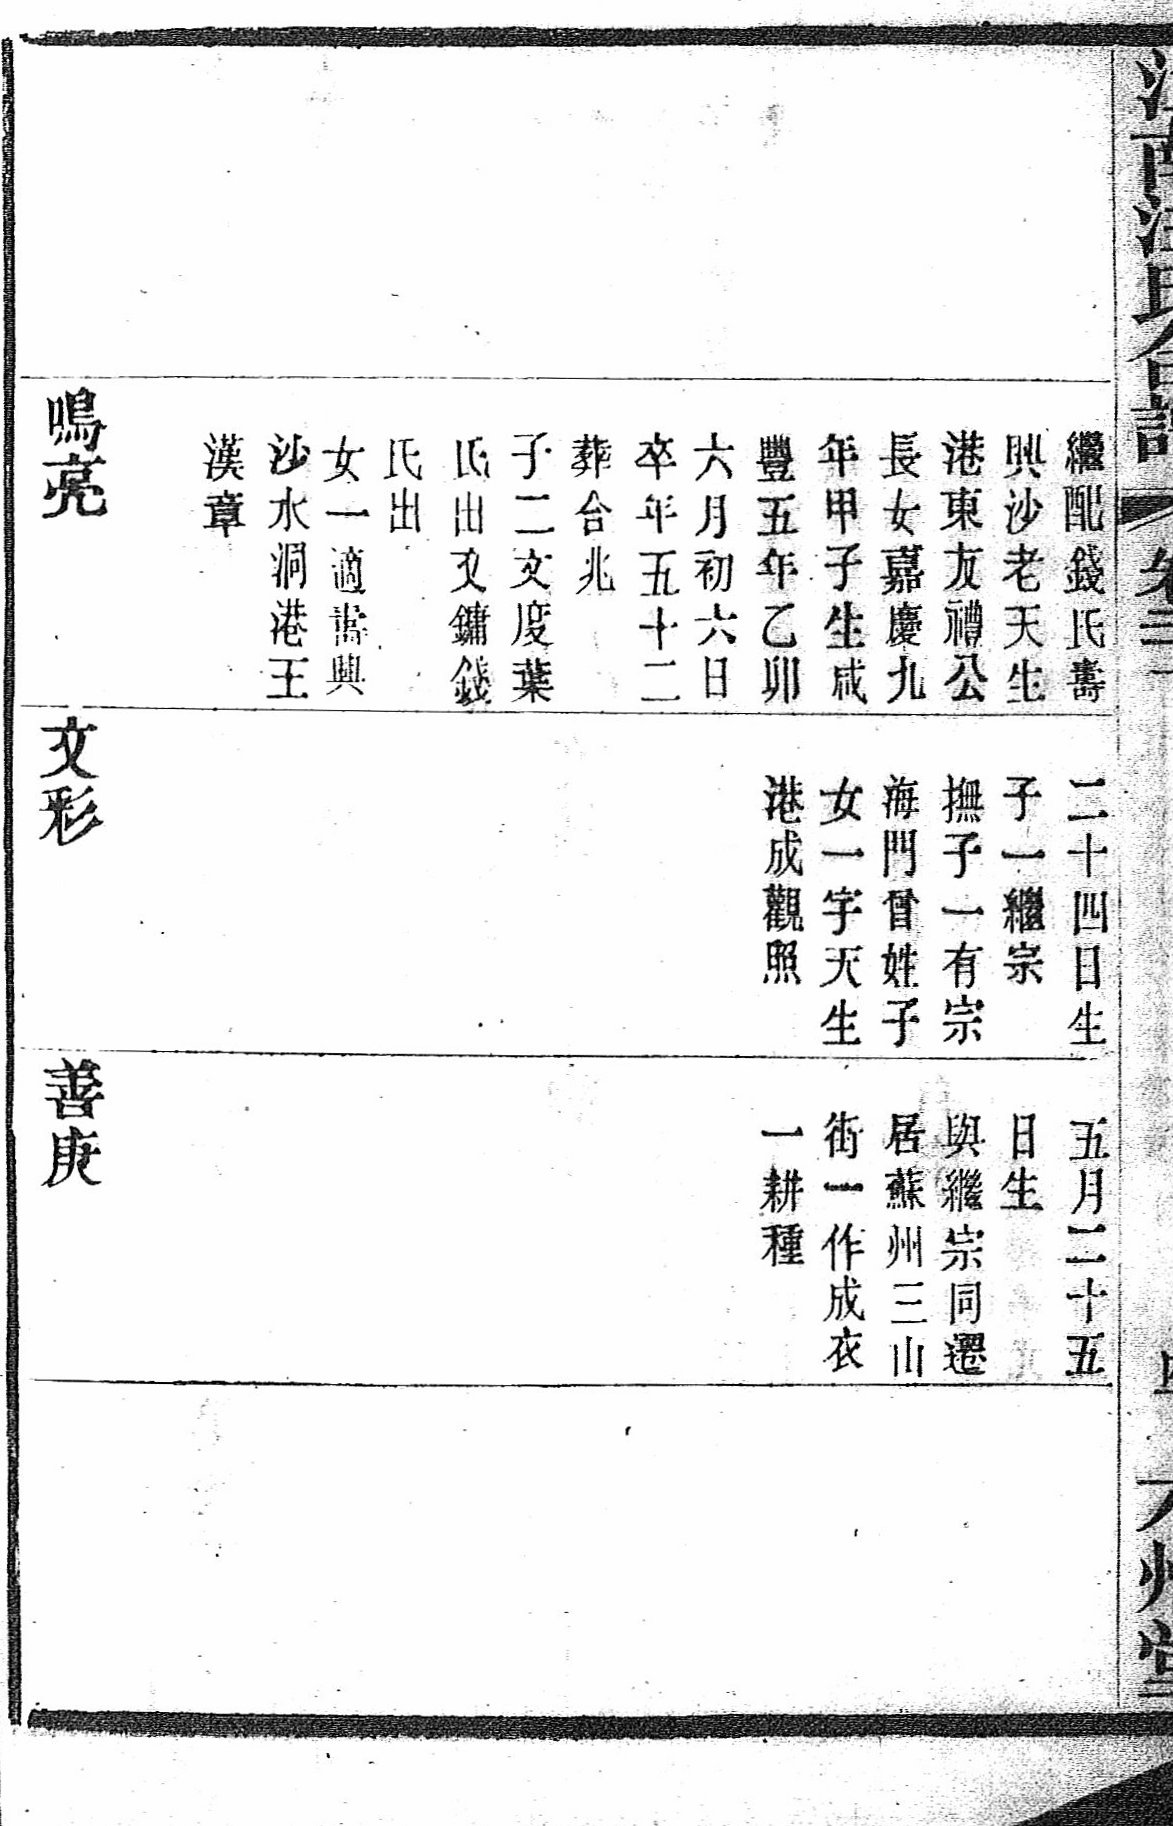 繼配錢氏壽
興沙老天生
港東友禮公
長女嘉慶九
年甲子生咸
豐五年乙卯
六月初六日
卒年五十二
葬合兆
子二文度葉
氏出文鏞錢
氏出
女一適壽興
沙水洞港王
漢章
鳴亮
二十四日生
子一繼宗
撫子一有宗
海門曾姓子
女一字天生
港成觀照
文彩
五月二十五
日生
與繼宗同遷
居蘇州三山
街一作成衣
一耕種
善庚